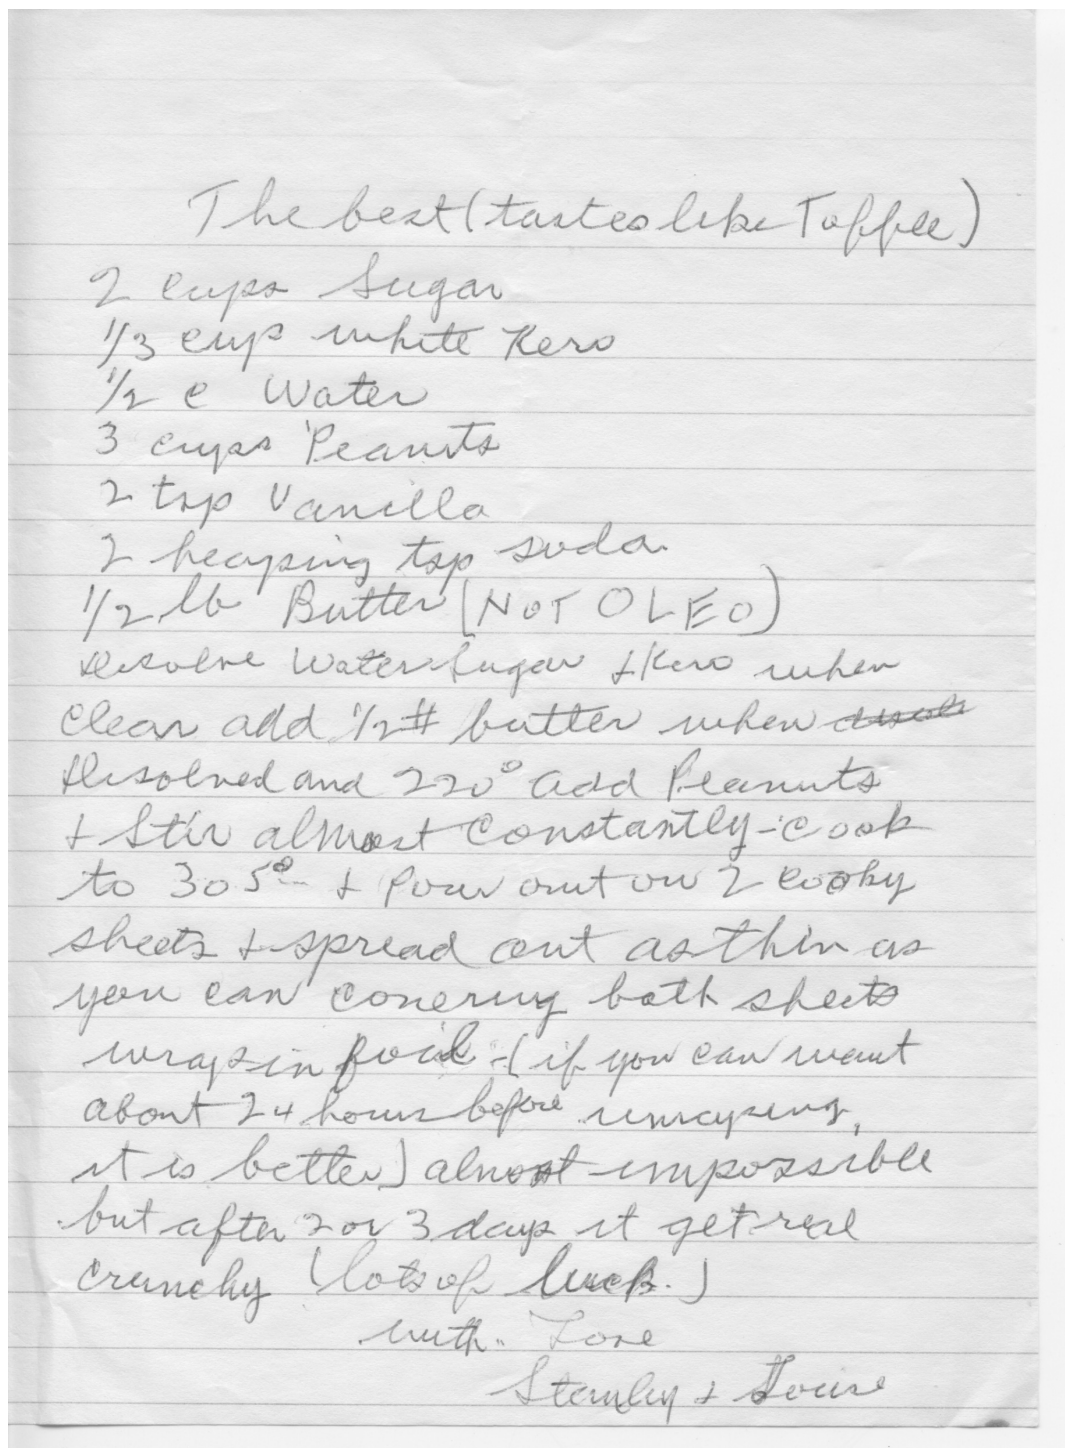 The best (tastes like Toffee)
2 cups Sugar
1/3 cup white Kero
1/2 c Water
3 cups Peanuts
2 tsp Vanilla
2 heaping tsp soda
1/2 lb Butter (NOT OLEO)
disolve Water Sugar + Kero when
clear add 1/2# butter when
disolved and 220° add Peanuts
+ Stir almost constantly - cook
to 305° + pour out on 2 cooky
sheets + spread out as thin as
you can covering both sheets
wrap in foil - (if you can want
about 24 hours before unwraping,
it is better) almost impossible
but after 2 or 3 days it get real
crunchy (lots of luck.)
with Love
Stanley + Louise